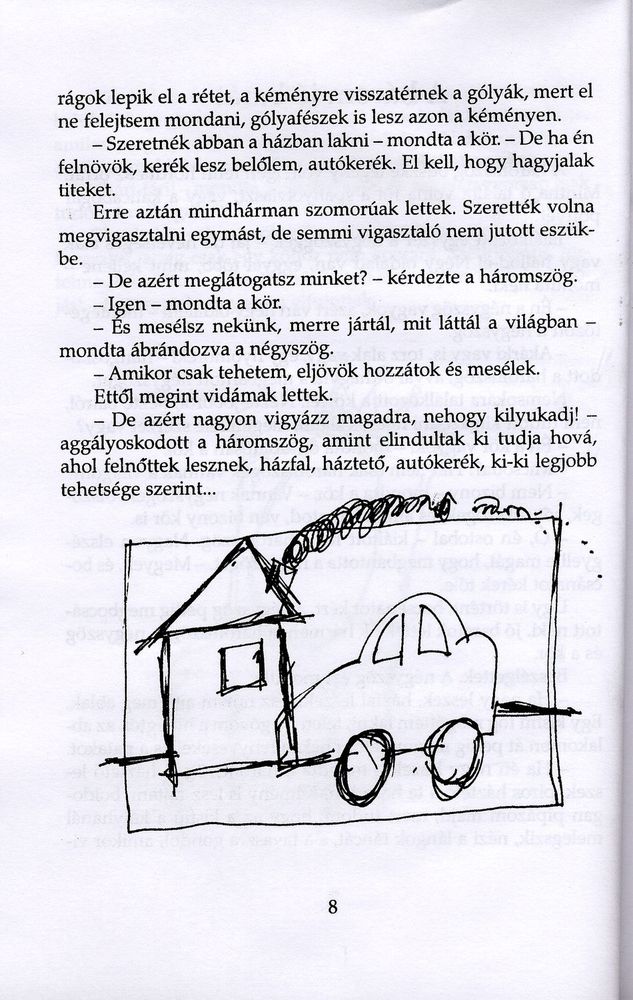 rágok lepik el a rétet, a kéményre visszatérnek a gólyák, mert el
ne felejtsem mondani, gólyafészek is lesz azon a kéményen.
– Szeretnék abban a házban lakni – mondta a kör. – De ha én
felnövök, kerék lesz belőlem, autókerék. El kell, hogy hagyjalak
titeket.
Erre aztán mindhárman szomorúak lettek. Szerették volna
megvigasztalni egymást, de semmi vigasztaló nem jutott eszük-
be.
– De azért meglátogatsz minket? – kérdezte a háromszög.
– Igen – mondta a kör.
– És mesélsz nekünk, merre jártál, mit láttál a világban –
mondta ábrándozva a négyszög.
– Amikor csak tehetem, eljövök hozzátok és mesélek.
Ettől megint vidámak lettek.
– De azért nagyon vigyázz magadra, nehogy kilyukadj! –
aggályoskodott a háromszög, amint elindultak ki tudja hová,
ahol felnőttek lesznek, házfal, háztető, autókerék, ki-ki legjobb
tehetsége szerint...
8